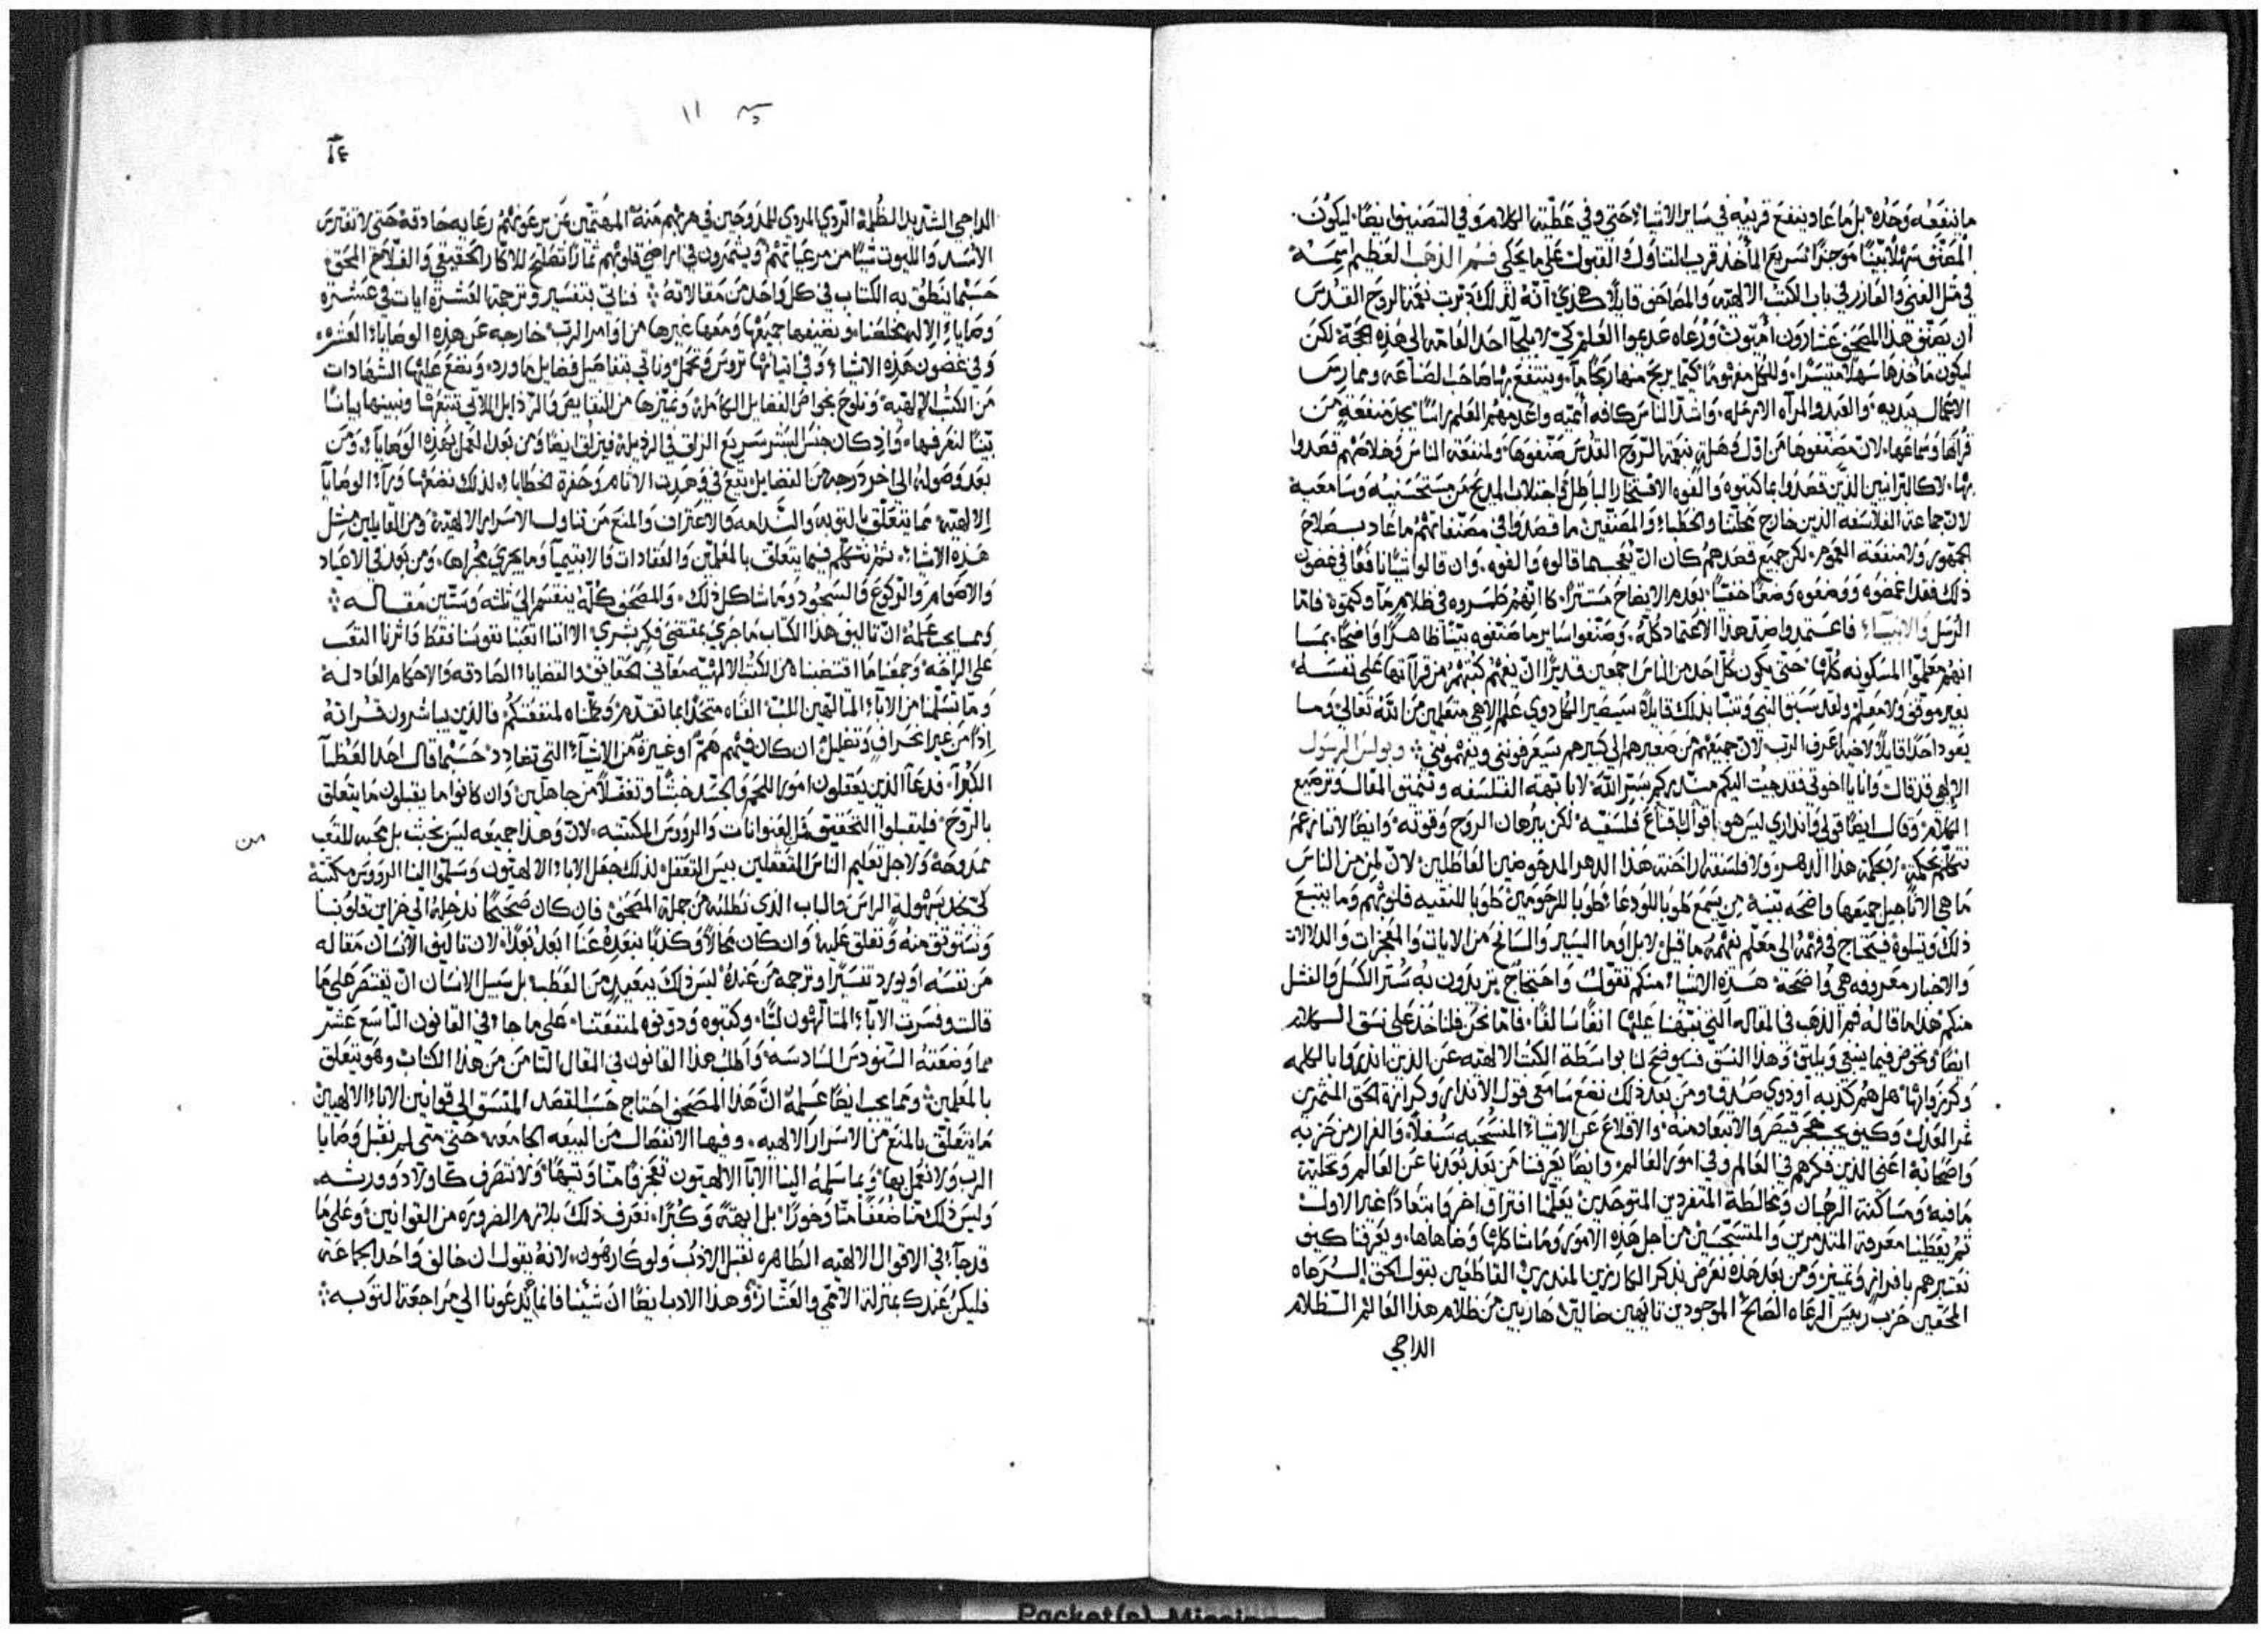 ما ينفعه وحده بل ما عاد ينفع قريبه في ساير الاشياء حتى وفي عظتنا الكلام وفي التصنيف ايضًا ليكون
المصنَّف سهلاً بيّنًا موجزًا سريع المأخذ قريب التناول والقبول على ما يحكي فم الذهب العظيم اسمه
في مثل الغني والعازر في باب الكتب الالهيه والمصاحف قايلاً هكذي انه لذلك دبرت نعمة الروح القدس
ان يصنف هذا المصحف عشارون أميون ورعاه عدموا العلم كي لا يلجأ احد العامه الى هذه الحجة لكن
ليكون ماخذها سهلاً متيسرًا وللكل مفهومًا كيما يربح منها ربحًا ما وينتفع بها صاحب الصناعه وممارس
الاعمال بيديه والعبد والمرآه الارمله واشد الناس كافه أميه واعدمهم العلم راسًا يجد منفعة من
قرأتها وسماعها لان مصنفوها من اول وهلة بنعمة الروح القدس صنفوها ولمنفعة الناس وخلاصهم قصدوا
بها لا كالبرانيين الذين قصدوا بما كتبوه والفوه الافتخار الباطل واجتلاب المديح من مستحسنيه وسامعيه
لان جماعة الفلاسفه الذين خارج نحلتنا والخطباء والمصنفين ما قصدوا في مصنفاتهم ما عاد بصلاح
الجمهور ولا منفعة العموم لكن جميع قصدهم كان ان يعجب ما قالوه والفوه وان قالوا شيًا نافعًا في غضون
ذلك فقد اغمضوه ووضعوه وضعًا خفيًا بعدم الايضاح مستترًا كانهم طمروه في ظلام ما وكتموه فاما
الرسل والانبياء فاعتمدوا ضد هذا الاعتماد كله وصنفوا ساير ما صنفوه بيّنًا ظاهرًا واضحًا بما
انهم معلموا المسكونه كلها حتى يكون كل احد من الناس اجمعين قديرًا ان يفهم كتبهم من قرآتها على نفسه
بغير موقف ولا معلم ولقد سبق النبي وتنبّا بذلك قايلاً سيصير الكل ذوي علم الاهي متعلمين من الله تعالى وما
يعود احدًا قايلاً لاخيه اعرف الرب لان جميعهم من صغيرهم الى كبيرهم سيعرفونني ويفهمونني وبولس الرسول
الالهي قد قال وانا يا اخوتي فقد جيت اليكم مبشركم بسر الله لا بابهة الفلسفه وتنميق المقال وترصيع
الكلام وقال ايضًا قولي وانذاري ليس هو باقوال اقناع فلسفيه لكن ببرهان الروح وقوته وايضًا لاننا نزعم
نتكلم بحكمة لا بحكمة هذا الدهر ولا فلسفة اراخنة هذا الدهر المدحوضين العاطلين لان لمن من الناس
ما هي الاناجيل جميعها واضحه بيّنة من يسمع طوبا للودعا طوبا للرحومين طوبا للنقيه قلوبهم وما يتبع
ذلك ويتلوه فيحتاج في فهمه الى معلم يفهمه ما قيل لا بل اوما السير والسانح من الايات والمعجزات والدلالات
والاخبار معروفه هي واضحة هذه الاشياء منكم تقول واحتجاج يريدون به ستر الكسل والفشل
منكم هذا ما قاله فم الذهب في المقاله التي نبّهنا عليها انفًا سالفًا فاما نحن فلناخذ على نسق الكلام
ايضًا ونخوض فيما ينبغي ويليق وهذا النسق فيوضح لنا بواسطة الكتب الالهيه عن الذين انذروا بالكلمه
وكرزوا بها هل هم كذبه او ذوي صدق ومن بعد ذلك نضع سامعي قول الانذار وكرازة الحق المثمرين
ثمر العدل وكيف يجب هجر قيصر والابتعاد منه والاقلاع عن الاشياء المنتحبه سفلاً والفرار من حزبه
واصحابه اعني الذين فكرهم في العالم وفي امور العالم وايضًا يعرفنا من بعد بعدنا عن العالم وتخلية
ما فيه ومساكنة الرهبان ومخالطة المتفردين المتوحدين يعلمنا افتراق اخر وابتعادًا غير الاول
ثم يعطينا معرفة المتذمرين والمتسجسين من اجل هذه الامور وما شاكلها وضاهاها ويعرفنا كيف
نعتبرهم بافراز وتميز ومن بعد هذه نعرض بذكر الكارزين المنذرين القاطعين بقول الحق الرعاه
المحقين حزب رييس الرعاه الصالح الموجودين تايهين ضالين هاربين من ظلام هذا العالم الظلام
الداجي
١١
١٤
الداجي الشديد الظلمة الردي المردي للمدروجين في هربهم منه المهتمين عن يرعونهم رعايه صادقة حتى لا تفترس
الأسد والليوث شيًا من مرعياتهم ويثمرون في اراضي قلوبهم ثمارًا تصلح للاكار الحقيقي والفلاح المحق
حسبما ينطق به الكتاب في كل واحد من مقالاته فناتي بتفسير وترجمة العشرة ايات في عشرة
وصاياء الاله مخلصنا ونضيفها جميعها ومعها غيرها من اوامر الرب خارجه عن هذه الوصايا العشره
وفي غضون هذه الاشياء وفي اثنائها نروس ونجمل وناتي بتفاصيل فضايل ما ورد ونضع عليها الشهادات
من الكتب الالهيه ونلوح بخواص الفضايل الكامله ونميزها من النقايص والرذايل اللاتي تتبعها ونبينها بيانًا
بيّنًا لنعرفها واذ كان جنس البشر سريع الزلق في الرذيلة فيزلق ايضًا ومن بعد العمل بهذه الوصايا ومن
بعد وصوله الى اخر درجه من الفضايل يقع في وهدت الاثام وحفرة الخطايا ولذلك نضع وراء الوصايا
الالهيه مما يتعلق بالتوبه والندامه والاعتراف والمنع من تناول الاسرار الالهية ومن القايلين مثل
هذه الاشياء ثم نتكلم فيما يتعلق بالمعلمين والعادات والابتيميا وما يجري مجراها ومن بعد في الاعياد
والاصوام والركوع والسجود وما شاكل ذلك والمصحف كله ينقسم الى ثلثه وستين مقاله
ومما يجب علمه ان تاليف هذا الكتاب ما جري بمقتضى فكر بشري الا اننا اتعبنا نفوسنا فقط واثرنا التعب
على الراحه وجمعنا ما اقتضبنا من الكتب الالهيه معاني الحقايق والقضايا الصادقه والاحكام العادله
وما تسلمنا من الآباء المتالهين اللبّ الفناه متحدًا بما تقدم وجعلناه لمنفعتكم فالذين يباشرون قراته
اذًا من غير انحراف وتعليل ان كان فيهم هَمّ او غيرة من الاشياء التي تضادد حسبما قال احد العظمآ
الكبرآ فدعآ الذين يعقلون امور اللحم والجسد خبثًا وتغفلاً من جاهلين وان كانوا ما يقبلون ما يتعلق
بالروح فليقبلوا التحقيق من العنوانات والروّوس المكتتبه لان وهذا جميعه ليس بخبث بل محبه للتعب من
ممدوحة ولاجل تعليم الناس المتغفلين بيس التغفل لذلك جعل الاباء الالهيون وسلموا الينا الروّوس مكتتبة
لكي نجد بسهولة الراس والباب الذي نطلبه من جملة المصحف فان كان صحيحًا ندخله الى خزاين قلوبنا
ونستوثق منه ونعلق عليه وان كان محالاً وكذبًا نبعده عنا ابعد بُعدًا لان تاليف الانسان مقاله
من نفسه او يورد تفسيرًا وترجمه من عنده ليس ذلك ببعيد من العطب بل سبيل الانسان ان يقتصر على ما
قالت وفسرت الآباء المتالهون لنا وكتبوه ودونوه لمنفعتنا على ما جاء في القانون التاسع عشر
مما وضعته السنودس السادسه واطلب هذا القانون في المقال الثامن من هذا الكتاب وهو يتعلق
بالمعلمين ومما يجب ايضًا علمه ان هذا المصحف احتاج حسب القصد المتسق الى قوانين الاباء الالهيين
ما يتعلق بالمنع من الاسرار الالهيه وفيها الانفصال من البيعه الجامعه حتى متى لم نقبل وصايا
الرب ولا نعمل بها وبما سلمه الينا الآبا الالهيون تعجرفًا منا وتيهًا ولا نتصرف كاولاد وورثه
وليس ذلك منا ضعفًا منا وخورًا بل ابهة وكبرًا نعرف ذلك بلازم الضروره من القوانين وعلى ما
قد جآء في الاقوال الالهيه الطاهره نقبل الادب ولو كارهون لانه يقول ان خالف واحد الجماعة
فليكن عندك بمنزلة الاممي والعشار وهذا الادب ايضًا ان شئنا فانما يدعونا الى مراجعة التوبه